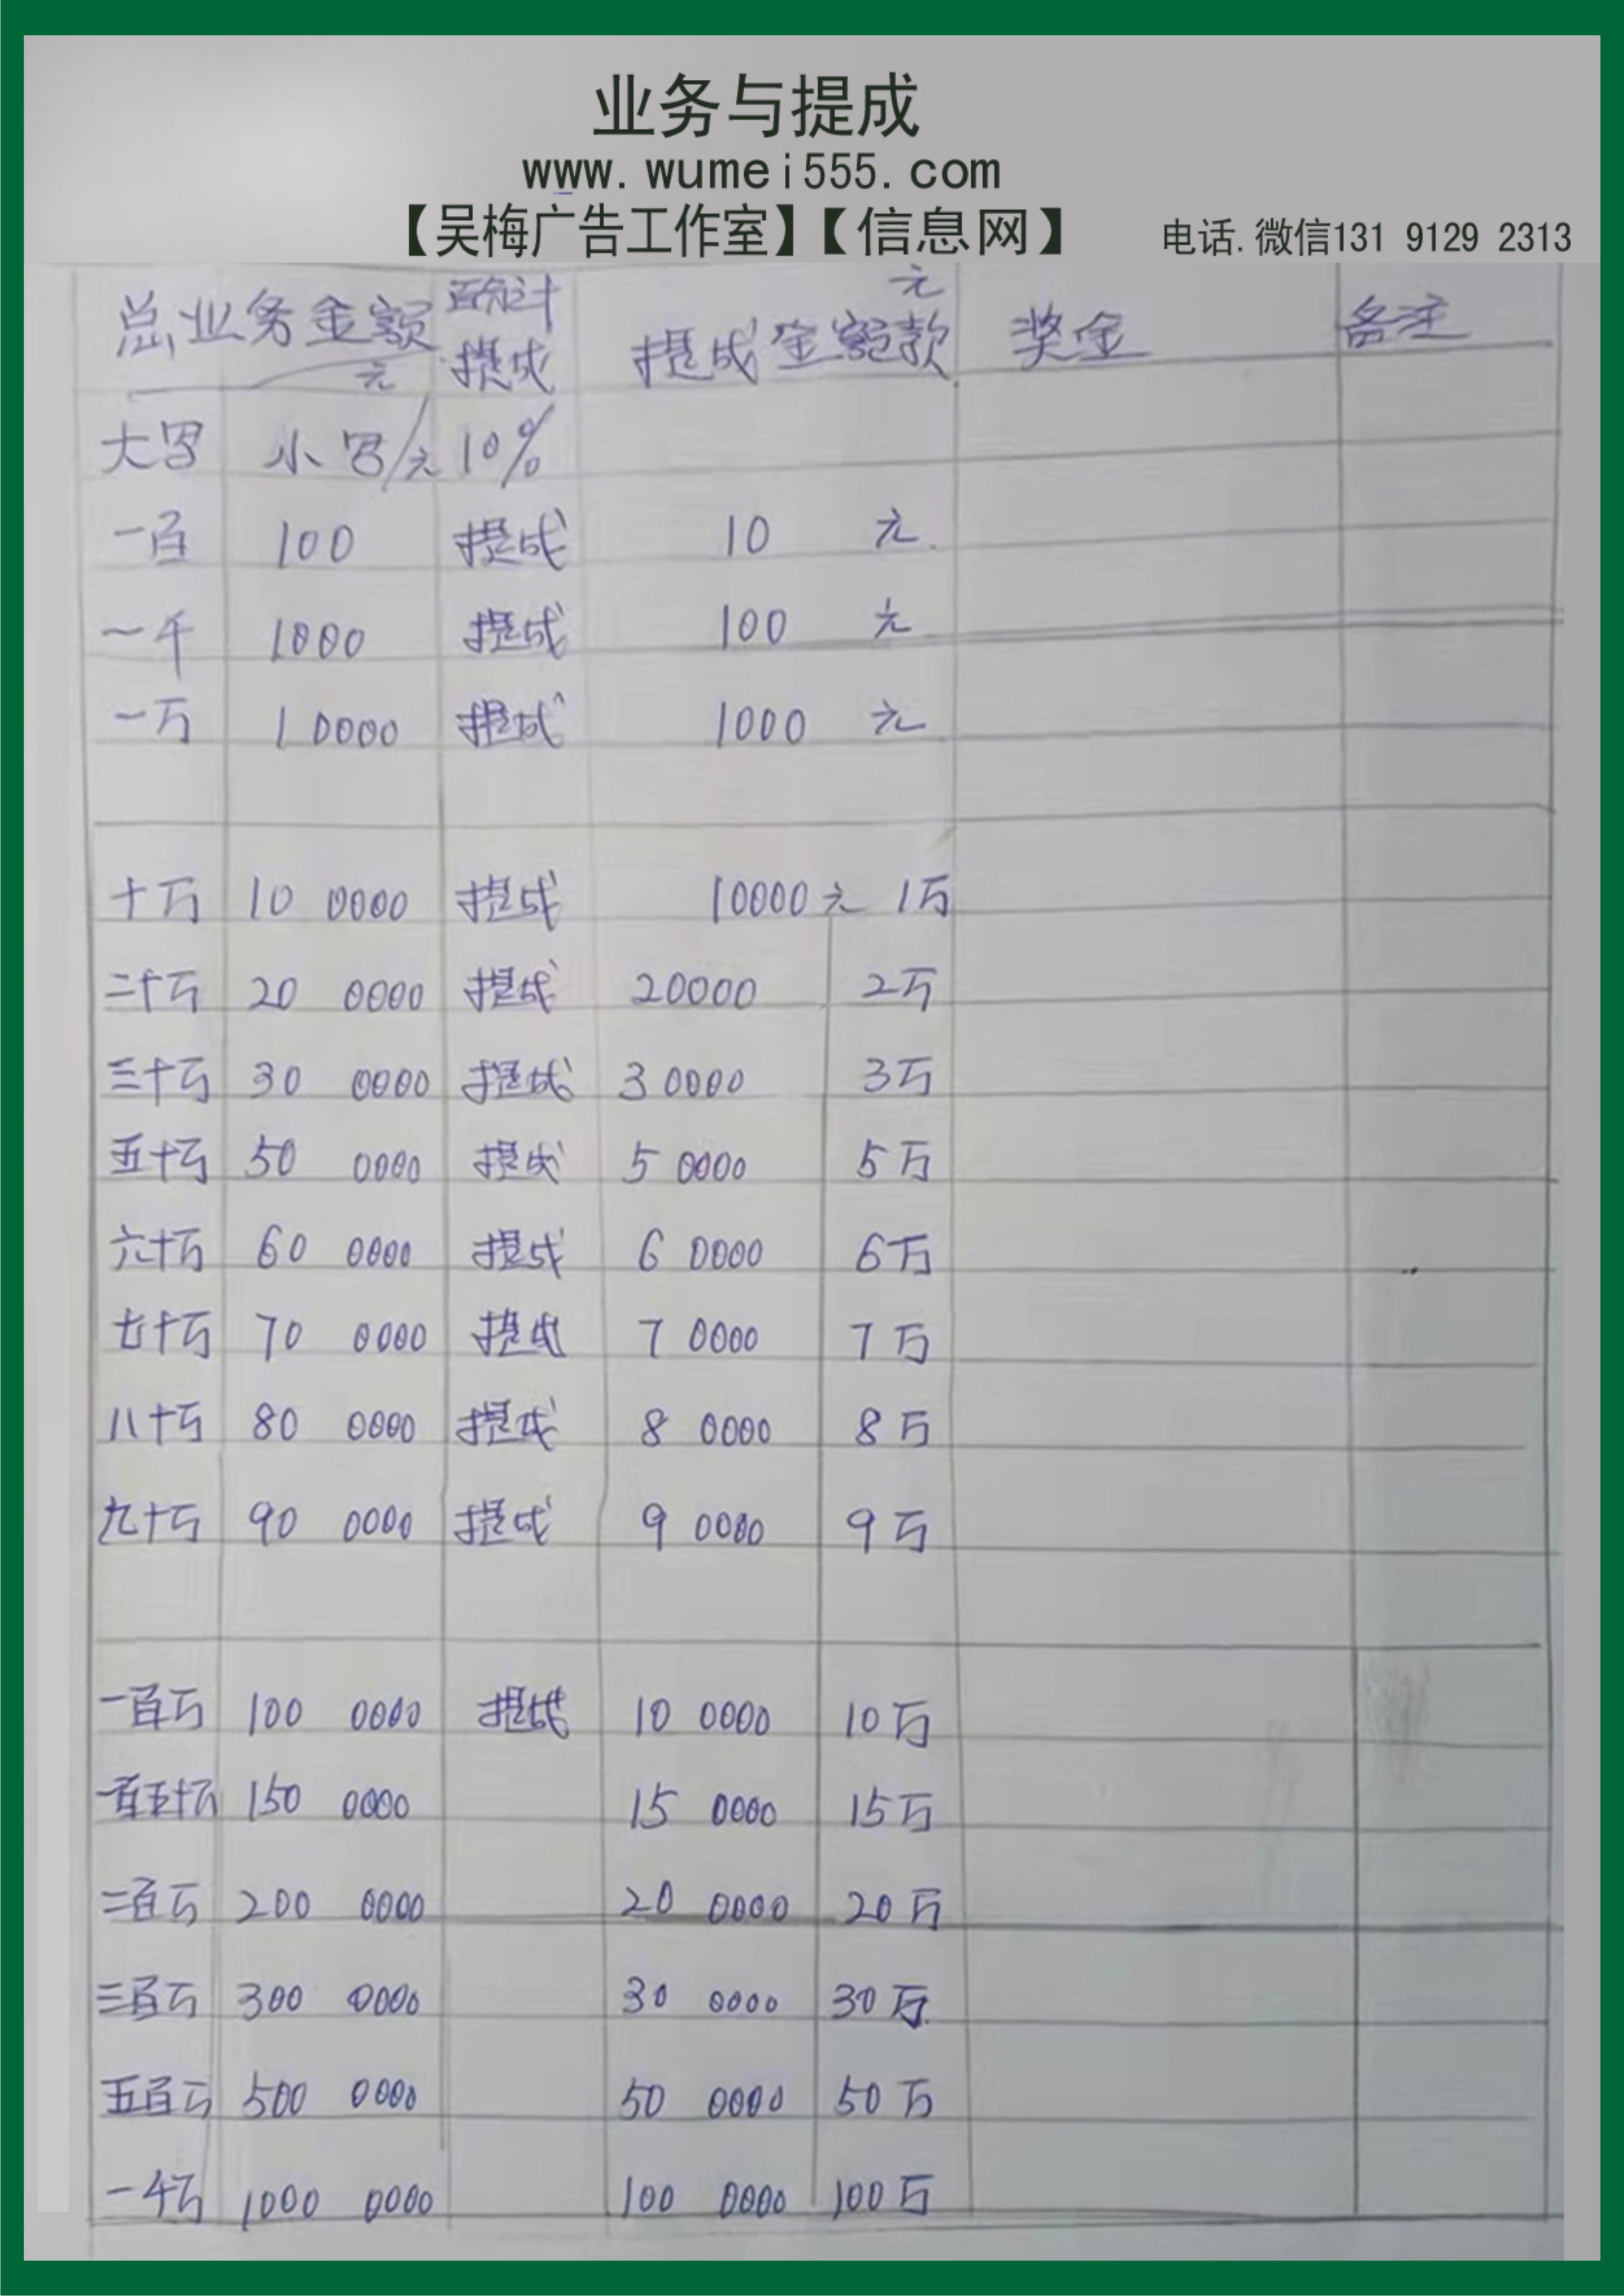 业务与提成
www.wumei555.com
【吴梅广告工作室】【信息网】 电话.微信131 9129 2313
总业务金额 元 百分计 提成 提成金额款 元 奖金 备注
大写 小写/元 10%
一百 100 提成 10 元
一千 1000 提成 100 元
一万 10000 提成 1000 元
十万 10 0000 提成 10000元 1万
二十万 20 0000 提成 20000 2万
三十万 30 0000 提成 30000 3万
五十万 50 0000 提成 5 0000 5万
六十万 60 0000 提成 6 0000 6万
七十万 70 0000 提成 7 0000 7万
八十万 80 0000 提成 8 0000 8万
九十万 90 0000 提成 9 0000 9万
一百万 100 0000 提成 10 0000 10万
一百五十万 150 0000 15 0000 15万
二百万 200 0000 20 0000 20万
三百万 300 0000 30 0000 30万
五百万 500 0000 50 0000 50万
一千万 1000 0000 100 0000 100万